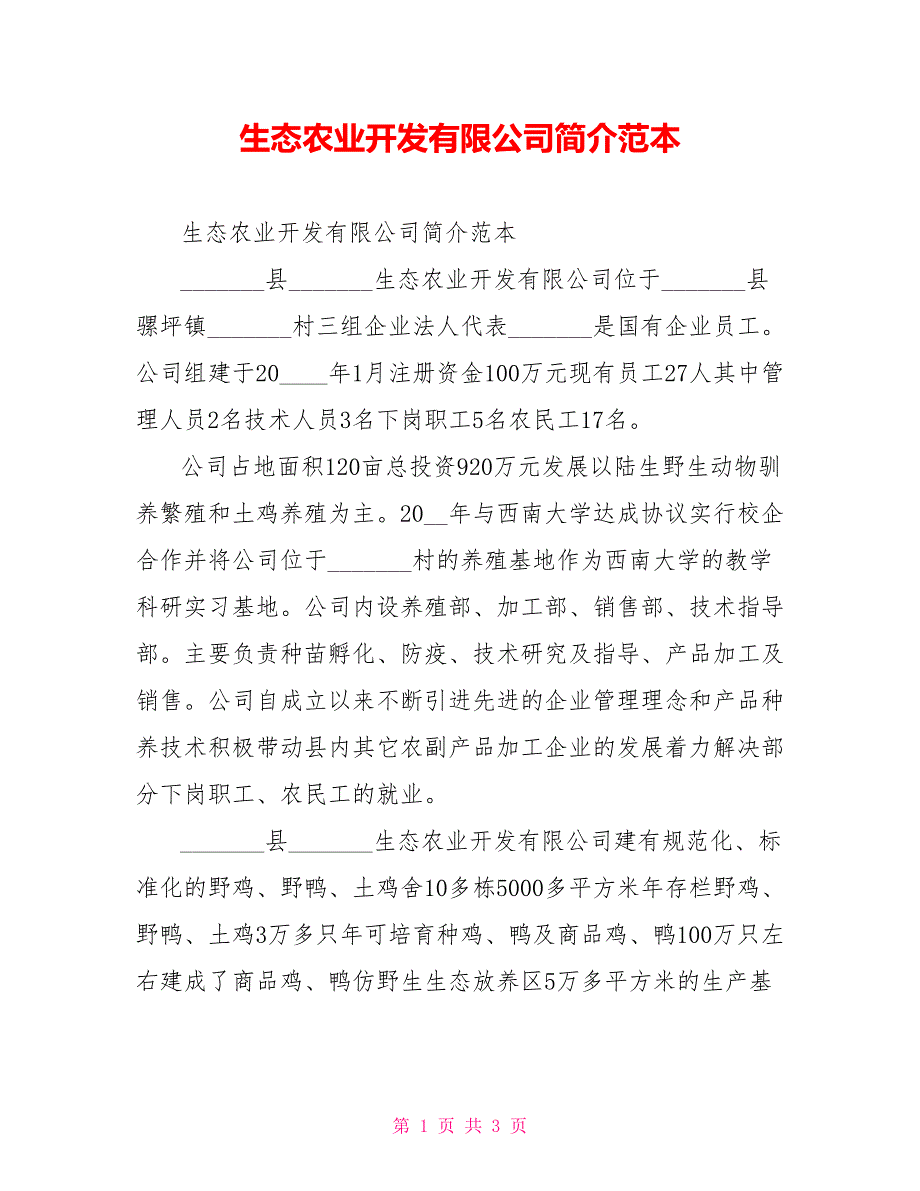 生态农业开发有限公司简介范本
生态农业开发有限公司简介范本
_______县_______生态农业开发有限公司位于_______县
骡坪镇_______村三组企业法人代表_______是国有企业员工。
公司组建于20____年1月注册资金100万元现有员工27人其中管
理人员2名技术人员3名下岗职工5名农民工17名。
公司占地面积120亩总投资920万元发展以陆生野生动物驯
养繁殖和土鸡养殖为主。20__年与西南大学达成协议实行校企
合作并将公司位于_______村的养殖基地作为西南大学的教学
科研实习基地。公司内设养殖部、加工部、销售部、技术指导
部。主要负责种苗孵化、防疫、技术研究及指导、产品加工及
销售。公司自成立以来不断引进先进的企业管理理念和产品种
养技术积极带动县内其它农副产品加工企业的发展着力解决部
分下岗职工、农民工的就业。
_______县_______生态农业开发有限公司建有规范化、标
准化的野鸡、野鸭、土鸡舍10多栋5000多平方米年存栏野鸡、
野鸭、土鸡3万多只年可培育种鸡、鸭及商品鸡、鸭100万只左
右建成了商品鸡、鸭仿野生生态放养区5万多平方米的生产基
第 1 页 共 3 页